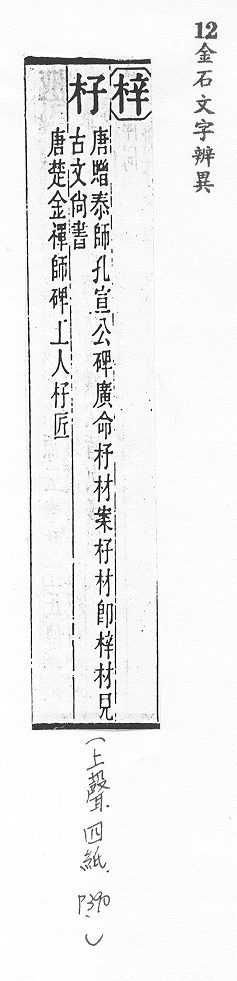 12金石文字辨異
〔梓〕
杍
唐贈泰師孔宣公碑廣命杍材案杍材卽梓材見
古文尙書
唐楚金禪師碑工人杍匠
(上聲.四紙. P390.)